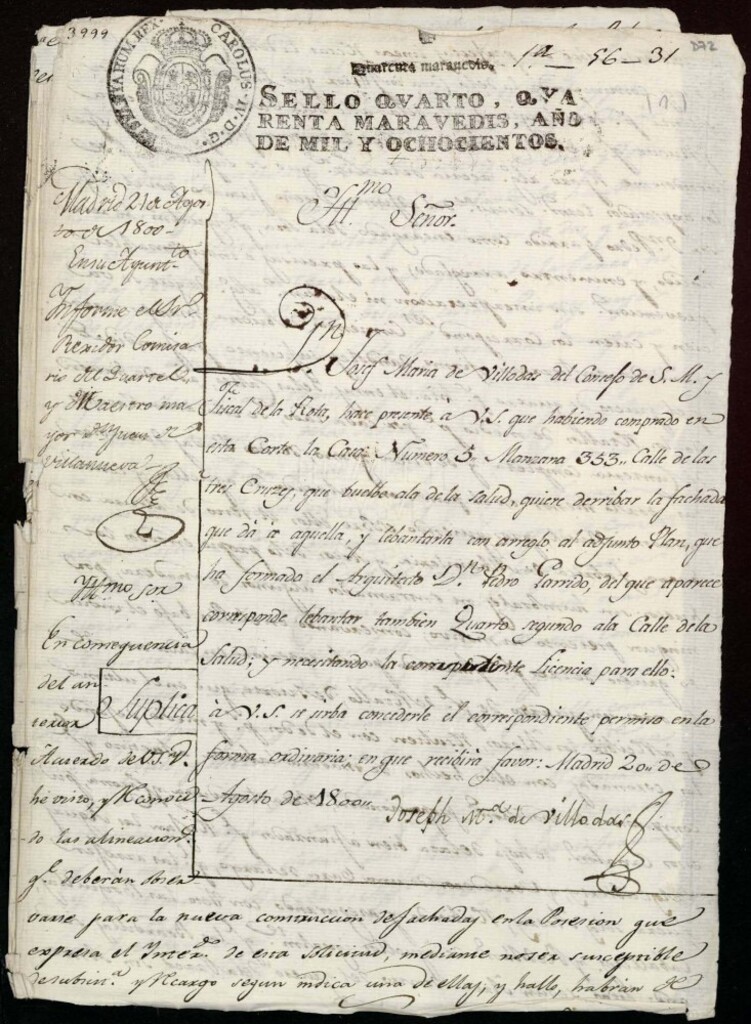 3999
CAROLUS·IV·D·G·
HISPANIARUM REX·
Quarenta maravedis.
1ª - 56 - 31
D72
(1)
SELLO QVARTO, QVA
RENTA MARAVEDIS, AÑO
DE MIL Y OCHOCIENTOS.
Madrid 21 de Agos
to de 1800
En su Ayuntto
Informe el Sr
Rexidor Comisa
rio del Quartel
y Maestro ma
yor Dn Juan de
Villanueva
Yllmo Señor.
Dn Josef Maria de Villodas del Consejo de S. M. y
Fiscal de la Rota, hace presente à V.S. que habiendo comprado en
esta Corte la Casa Numero 5 Manzana 353,, Calle de las
tres Cruzes, que buelbe ala de la salud, quiere derribar la fachada
que dà à aquella, y lebantarla con arreglo al adjunto Plan, que
ha formado el Arquitecto Dn Pedro Garrido, del que aparece
corresponde lebantar tambien Quarto segundo ala Calle de la
Salud; y necesitando la correspondiente Licencia para ello:
Suplica
à V.S. se sirba concederle el correspondiente permiso en la
forma ordinaria; en que recibirà favor: Madrid 20,, de
Agosto de 1800,,
Joseph Mª de Villodas
Yllmo Sor
En consequencia
del an
terior
Acuerdo de V.S.Y.
he visto, y Reconoci
do las alineaciones
q.e deberàn obser
varse para la nueva construccion de fachadas en la Posesion que
expresa el Interdo de esta solicitud, mediante no ser susceptible
de subirse y Recargo segun indica una de ellas; y hallo, habràn de